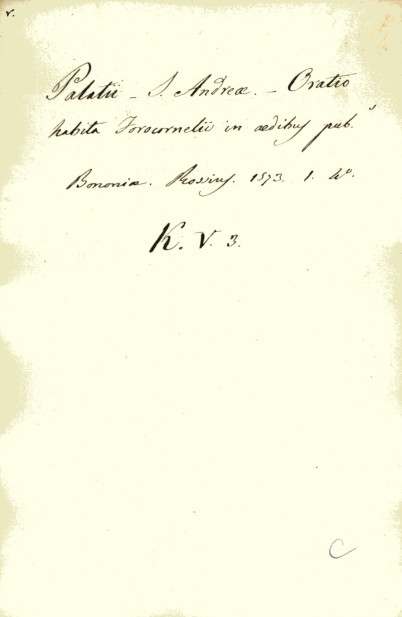 v.
Palatii - S. Andreæ. - Oratio
habita Forocornelii in ædibus pub.
Bononiæ. Rossius. 1573. 1. 4º.
K. V. 3.
C